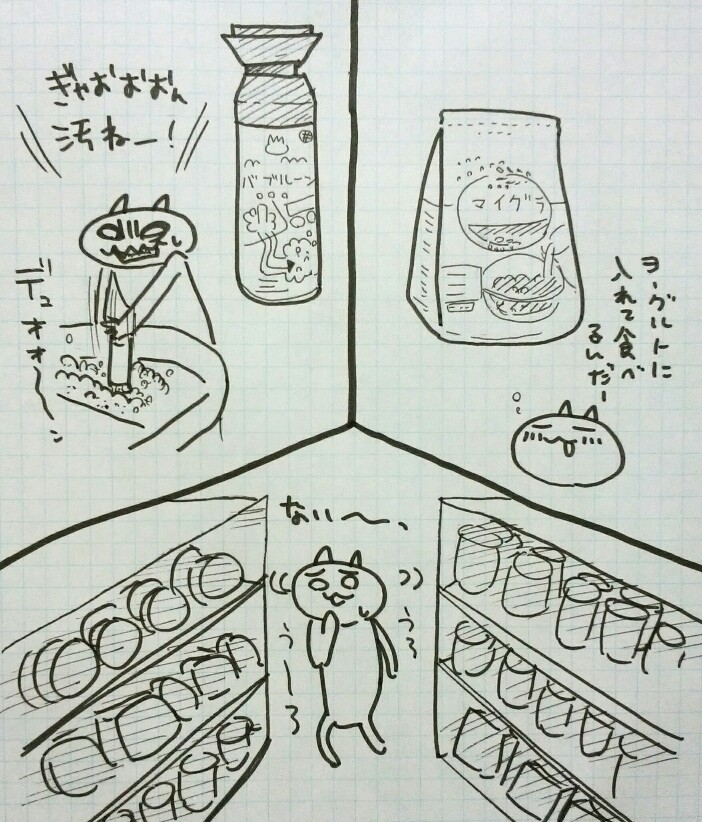 ぎゃおおおん
汚ねー!
バブルーン
デュオオ〜ン
マイグラ
ヨーグルトに
入れて食べ
るんだー
ない〜、
うろ
うーろ